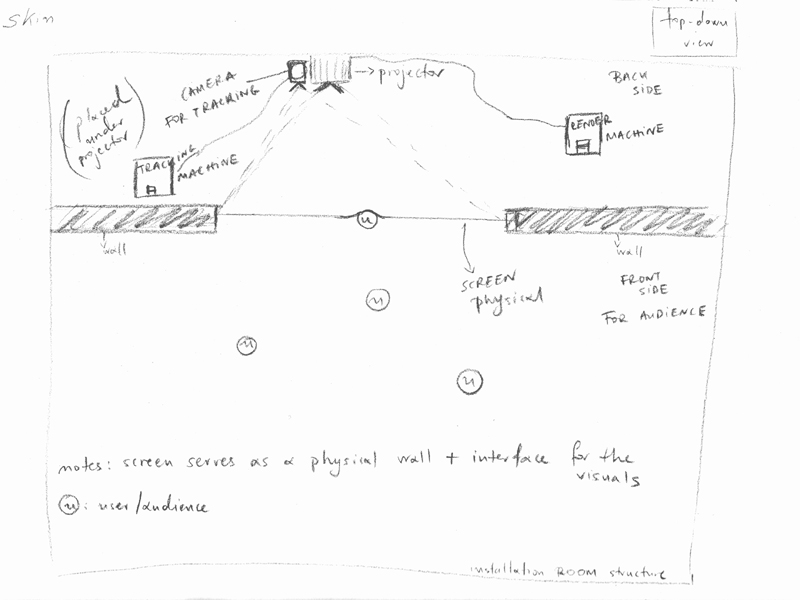 Skin
top-down
view
CAMERA
FOR TRACKING
→ projector
BACK
SIDE
(placed
under
projector)
RENDER
MACHINE
TRACKING
MACHINE
u
wall
wall
SCREEN
physical
FRONT
SIDE
FOR AUDIENCE
u
u
u
notes: screen serves as a physical wall + interface for the
visuals
u: user/audience
installation ROOM structure